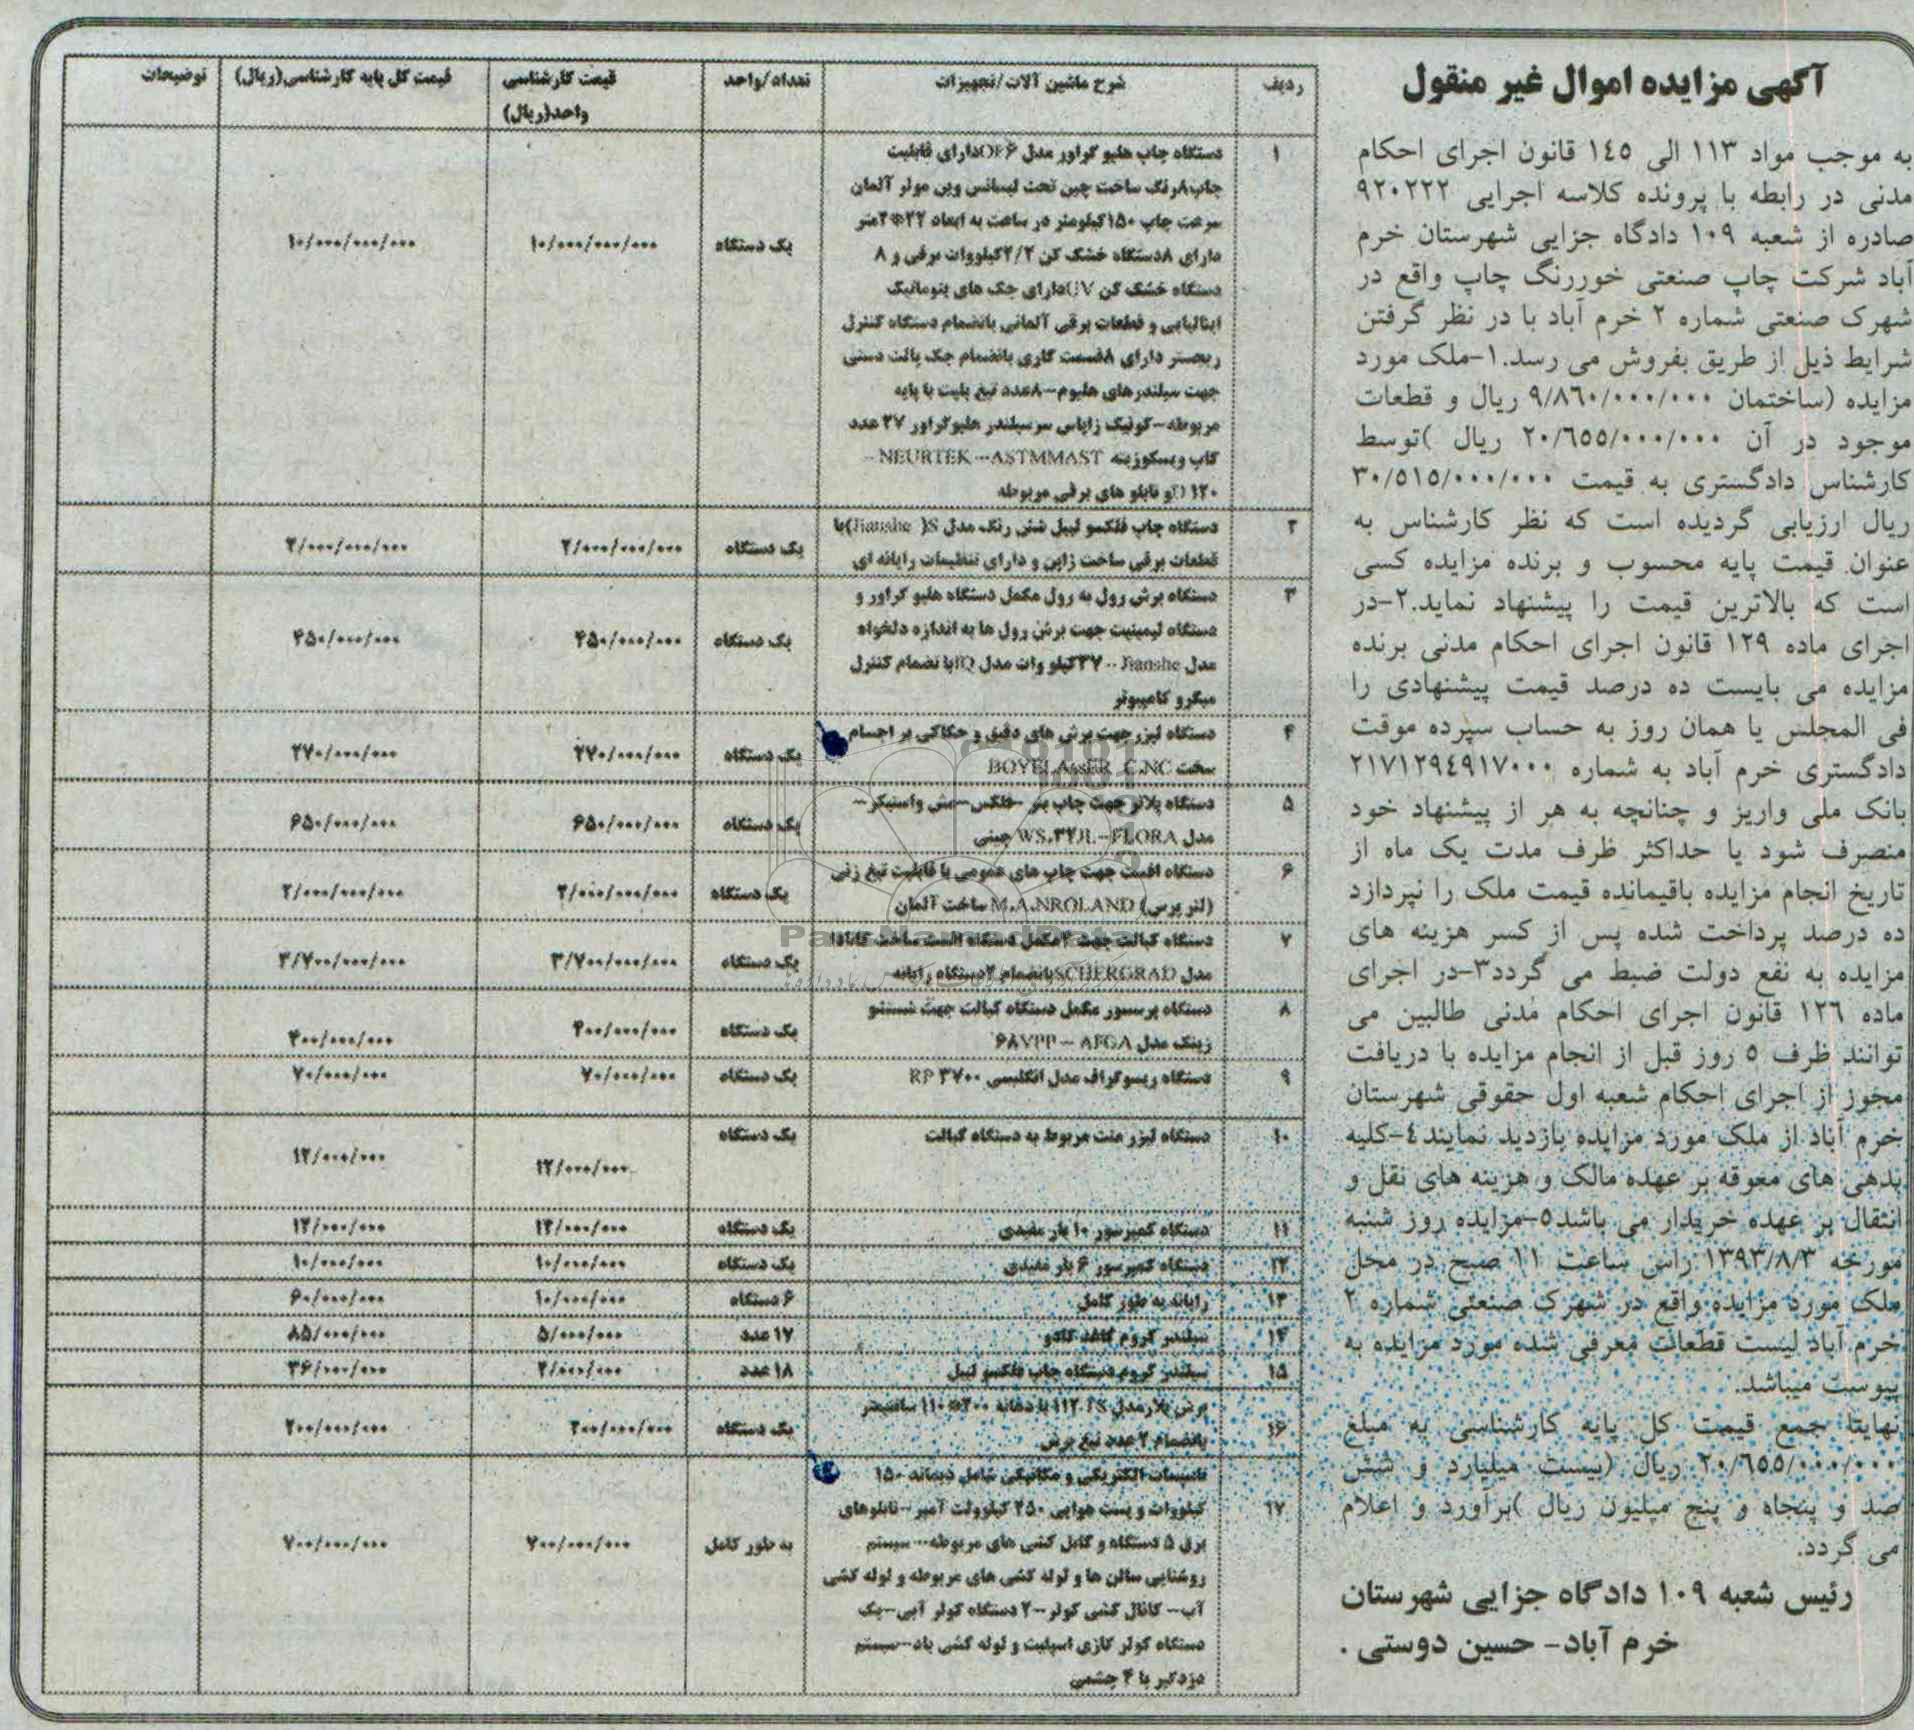 آگهی مزایده اموال غیر منقول
به موجب مواد ۱۱۳ الی ۱٤٥ قانون اجرای احکام
مدنی در رابطه با پرونده کلاسه اجرایی ۹۲۰۲۲۲
صادره از شعبه ۱۰۹ دادگاه جزایی شهرستان خرم
آباد شرکت چاپ صنعتی خوررنگ چاپ واقع در
شهرک صنعتی شماره ۲ خرم آباد با در نظر گرفتن
شرایط ذیل از طریق بفروش می رسد.۱-ملک مورد
مزایده (ساختمان ۹/۸٦۰/۰۰۰/۰۰۰ ریال و قطعات
موجود در آن ۲۰/٦٥٥/۰۰۰/۰۰۰ ریال )توسط
کارشناس دادگستری به قیمت ۳۰/٥۱٥/۰۰۰/۰۰۰
ریال ارزیابی گردیده است که نظر کارشناس به
عنوان قیمت پایه محسوب و برنده مزایده کسی
است که بالاترین قیمت را پیشنهاد نماید.۲-در
اجرای ماده ۱۲۹ قانون اجرای احکام مدنی برنده
مزایده می بایست ده درصد قیمت پیشنهادی را
فی المجلس یا همان روز به حساب سپرده موقت
دادگستری خرم آباد به شماره ۲۱۷۱۲۹٤۹۱۷۰۰۰
بانک ملی واریز و چنانچه به هر از پیشنهاد خود
منصرف شود یا حداکثر ظرف مدت یک ماه از
تاریخ انجام مزایده باقیمانده قیمت ملک را نپردازد
ده درصد پرداخت شده پس از کسر هزینه های
مزایده به نفع دولت ضبط می گردد۳-در اجرای
ماده ۱۲٦ قانون اجرای احکام مدنی طالبین می
توانند ظرف ٥ روز قبل از انجام مزایده با دریافت
مجوز از اجرای احکام شعبه اول حقوقی شهرستان
خرم آباد از ملک مورد مزایده بازدید نمایند٤-کلیه
بدهی های معوقه بر عهده مالک و هزینه های نقل و
انتقال بر عهده خریدار می باشد٥-مزایده روز شنبه
مورخه ۱۳۹۳/۸/۳ راس ساعت ۱۱ صبح در محل
ملک مورد مزایده واقع در شهرک صنعتی شماره ۲
خرم آباد لیست قطعات معرفی شده مورد مزایده به
پیوست میباشد.
نهایتا جمع قیمت کل پایه کارشناسی به مبلغ
۲۰/٦٥٥/۰۰۰/۰۰۰ ریال (بیست میلیارد و شش
صد و پنجاه و پنج میلیون ریال )برآورد و اعلام
می گردد.
رئیس شعبه ۱۰۹ دادگاه جزایی شهرستان
خرم آباد- حسین دوستی .
ردیف شرح ماشین آلات/تجهیزات تعداد/واحد قیمت کارشناسی قیمت کل پایه کارشناسی(ریال) توضیحات
واحد(ریال)
۱ دستگاه چاپ هلیو گراور مدل OF۶دارای قابلیت
چاپ۸رنگ ساخت چین تحت لیسانس وین مولر آلمان
سرعت چاپ ۱۵۰کیلومتر در ساعت به ابعاد ۲۲*۲متر
دارای ۸دستگاه خشک کن ۲/۲کیلووات برقی و ۸
یک دستگاه ۱۰/۰۰۰/۰۰۰/۰۰۰ ۱۰/۰۰۰/۰۰۰/۰۰۰
دستگاه خشک کن UVدارای جک های پنوماتیک
ایتالیایی و قطعات برقی آلمانی بانضمام دستگاه کنترل
ریجستر دارای ۸قسمت گاری بانضمام جک پالت دستی
جهت سیلندرهای هلیوم-۸عدد تیغ پلیت با پایه
مربوطه-کونیک زاپاس سرسیلندر هلیوگراور ۲۷ عدد
کاپ ویسکوزیته NEURTEK--ASTMMAST-
D ۱۲۰و تابلو های برقی مربوطه
۲ دستگاه چاپ فلکسو لیبل شش رنگ مدل Jianshe )S)با
قطعات برقی ساخت ژاپن و دارای تنظیمات رایانه ای یک دستگاه ۲/۰۰۰/۰۰۰/۰۰۰ ۲/۰۰۰/۰۰۰/۰۰۰
۳ دستگاه برش رول به رول مکمل دستگاه هلیو گراور و
دستگاه لیمینیت جهت برش رول ها به اندازه دلخواه
یک دستگاه ۴۵۰/۰۰۰/۰۰۰ ۴۵۰/۰۰۰/۰۰۰
مدل Jianshe--۳۷کیلو وات مدل IQبا نضمام کنترل
میکرو کامپیوتر
۴ دستگاه لیزر جهت برش های دقیق و حکاکی بر اجسام
سخت BOYELAsER C.NC یک دستگاه ۲۷۰/۰۰۰/۰۰۰ ۲۷۰/۰۰۰/۰۰۰
۵ دستگاه پلاتر جهت چاپ بنر -فلکس-مش واستیکر-
مدل WS.۳۲JL-FLORA چینی یک دستگاه ۶۵۰/۰۰۰/۰۰۰ ۶۵۰/۰۰۰/۰۰۰
۶ دستگاه افست جهت چاپ های عمومی با قابلیت تیغ زنی
(لتر پرس) M.A.NROLAND ساخت آلمان یک دستگاه ۲/۰۰۰/۰۰۰/۰۰۰ ۲/۰۰۰/۰۰۰/۰۰۰
۷ دستگاه کبالت جهت مکمل دستگاه افست ساخت کانادا
مدل SCHERGRADبانضمام ۲دستگاه رایانه یک دستگاه ۳/۷۰۰/۰۰۰/۰۰۰ ۳/۷۰۰/۰۰۰/۰۰۰
۸ دستگاه پرسسور مکمل دستگاه کبالت جهت شستشو
زینک مدل ۶۸VPP - AFGA یک دستگاه ۴۰۰/۰۰۰/۰۰۰ ۴۰۰/۰۰۰/۰۰۰
۹ دستگاه ریسوگراف مدل انگلیسی RP ۳۷۰۰ یک دستگاه ۷۰/۰۰۰/۰۰۰ ۷۰/۰۰۰/۰۰۰
۱۰ دستگاه لیزر منت مربوط به دستگاه کبالت یک دستگاه ۱۲/۰۰۰/۰۰۰ ۱۲/۰۰۰/۰۰۰
۱۱ دستگاه کمپرسور ۱۰ بار مفیدی یک دستگاه ۱۲/۰۰۰/۰۰۰ ۱۲/۰۰۰/۰۰۰
۱۲ دستگاه کمپرسور ۶ بار مفیدی یک دستگاه ۱۰/۰۰۰/۰۰۰ ۱۰/۰۰۰/۰۰۰
۱۳ رایانه به طور کامل ۶ دستگاه ۱۰/۰۰۰/۰۰۰ ۶۰/۰۰۰/۰۰۰
۱۴ سیلندر کروم کاغذ کادو ۱۷ عدد ۵/۰۰۰/۰۰۰ ۸۵/۰۰۰/۰۰۰
۱۵ سیلندر کروم دستگاه چاپ فلکسو لیبل ۱۸ عدد ۲/۰۰۰/۰۰۰ ۳۶/۰۰۰/۰۰۰
۱۶ برش پلار مدل ۱۱۲.FS با دهانه ۲۰۰*۱۱۰ سانتیمتر
بانضمام ۲ عدد تیغ برش یک دستگاه ۲۰۰/۰۰۰/۰۰۰ ۲۰۰/۰۰۰/۰۰۰
۱۷ تاسیسات الکتریکی و مکانیکی شامل دیماند ۱۵۰
کیلووات و پست هوایی ۲۵۰ کیلوولت آمپر-تابلوهای
برق ۵ دستگاه و کابل کشی های مربوطه-سیستم
به طور کامل ۷۰۰/۰۰۰/۰۰۰ ۷۰۰/۰۰۰/۰۰۰
روشنایی سالن ها و لوله کشی های مربوطه و لوله کشی
آب- کانال کشی کولر-۲ دستگاه کولر آبی-یک
دستگاه کولر گازی اسپلیت و لوله کشی باد-سیستم
دزدگیر با ۴ چشمی
ParsNamadData